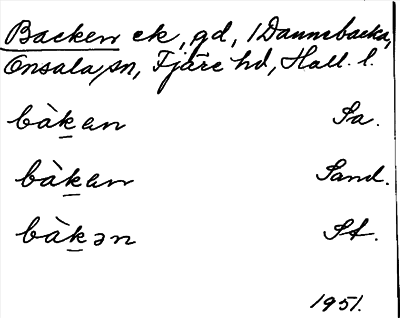 Backen ek, gd, 1 Dannebacka,
Onsala sn, Fjäre hd, Hall. l.
bàkan Sa.
bàkan Sand.
bàkən St.
1951.